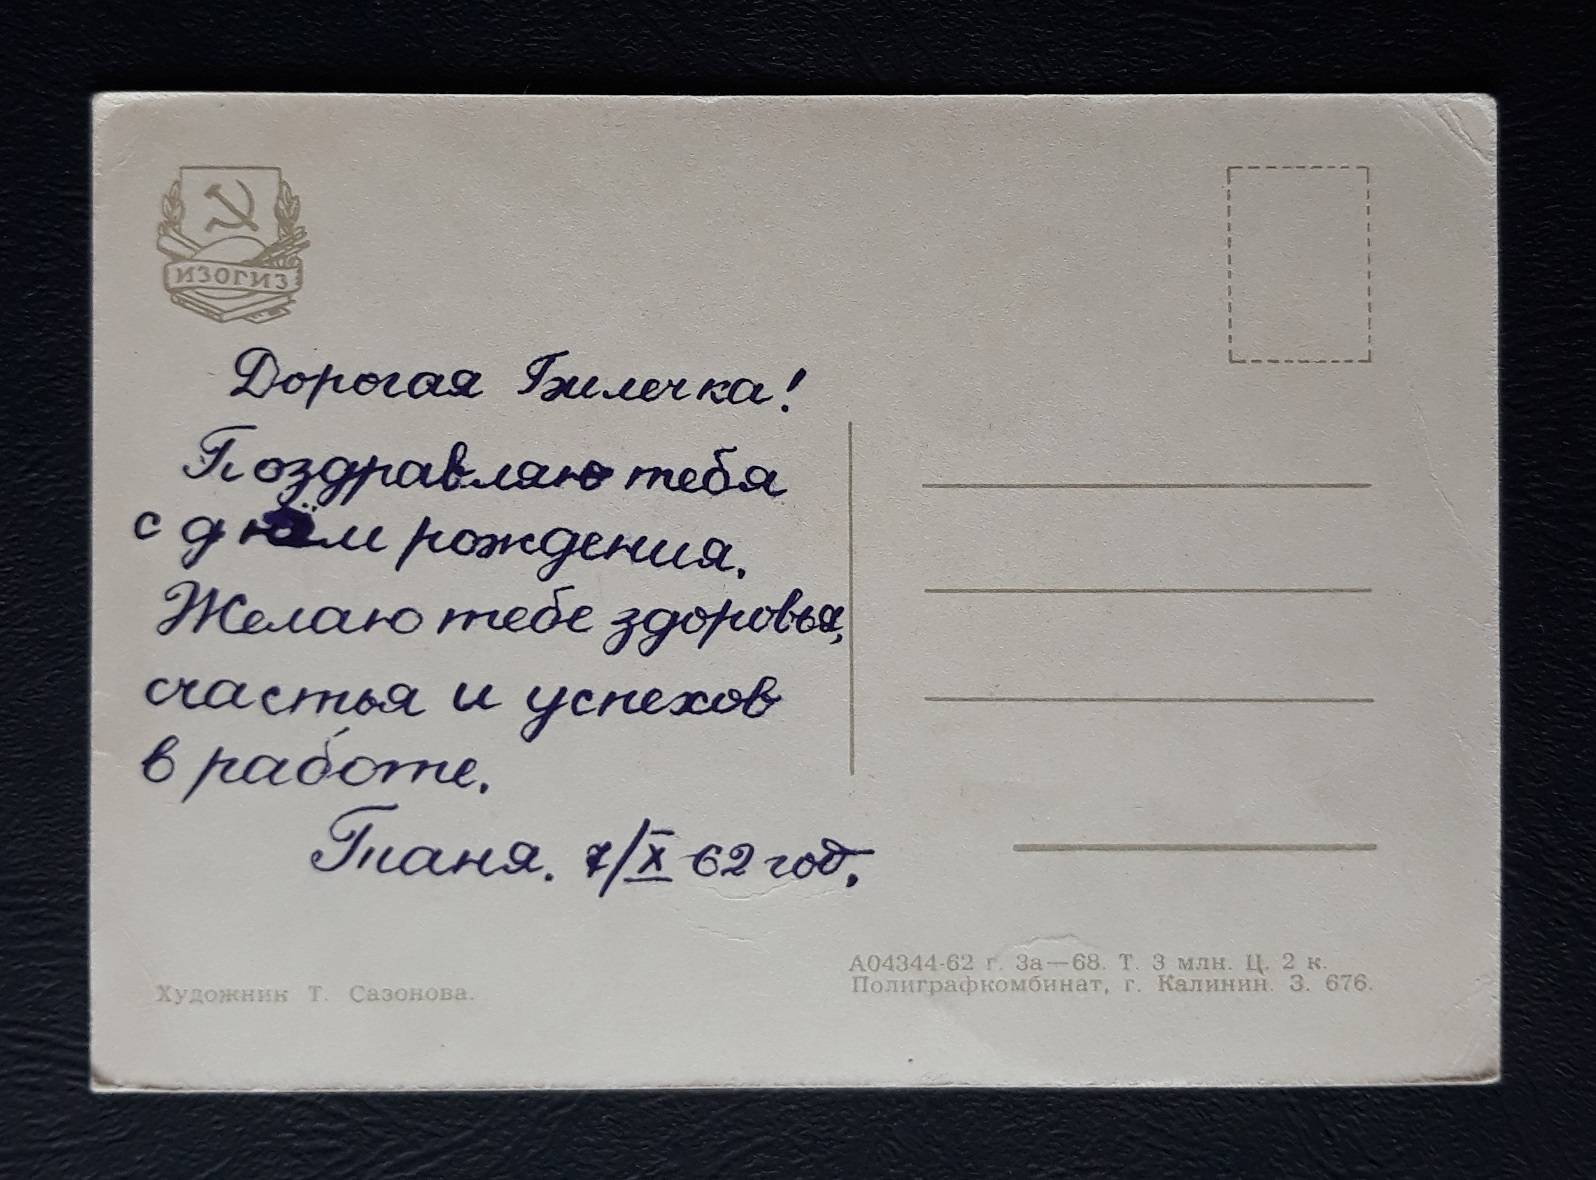 ИЗОГИЗ
Дорогая Билечка!
Поздравляю тебя
с днём рождения.
Желаю тебе здоровья,
счастья и успехов
в работе.
Таня. 7/X 62 год.
Художник Т. Сазонова.
А04344-62 г. За—68. Т. 3 млн. Ц. 2 к.
Полиграфкомбинат, г. Калинин. З. 676.